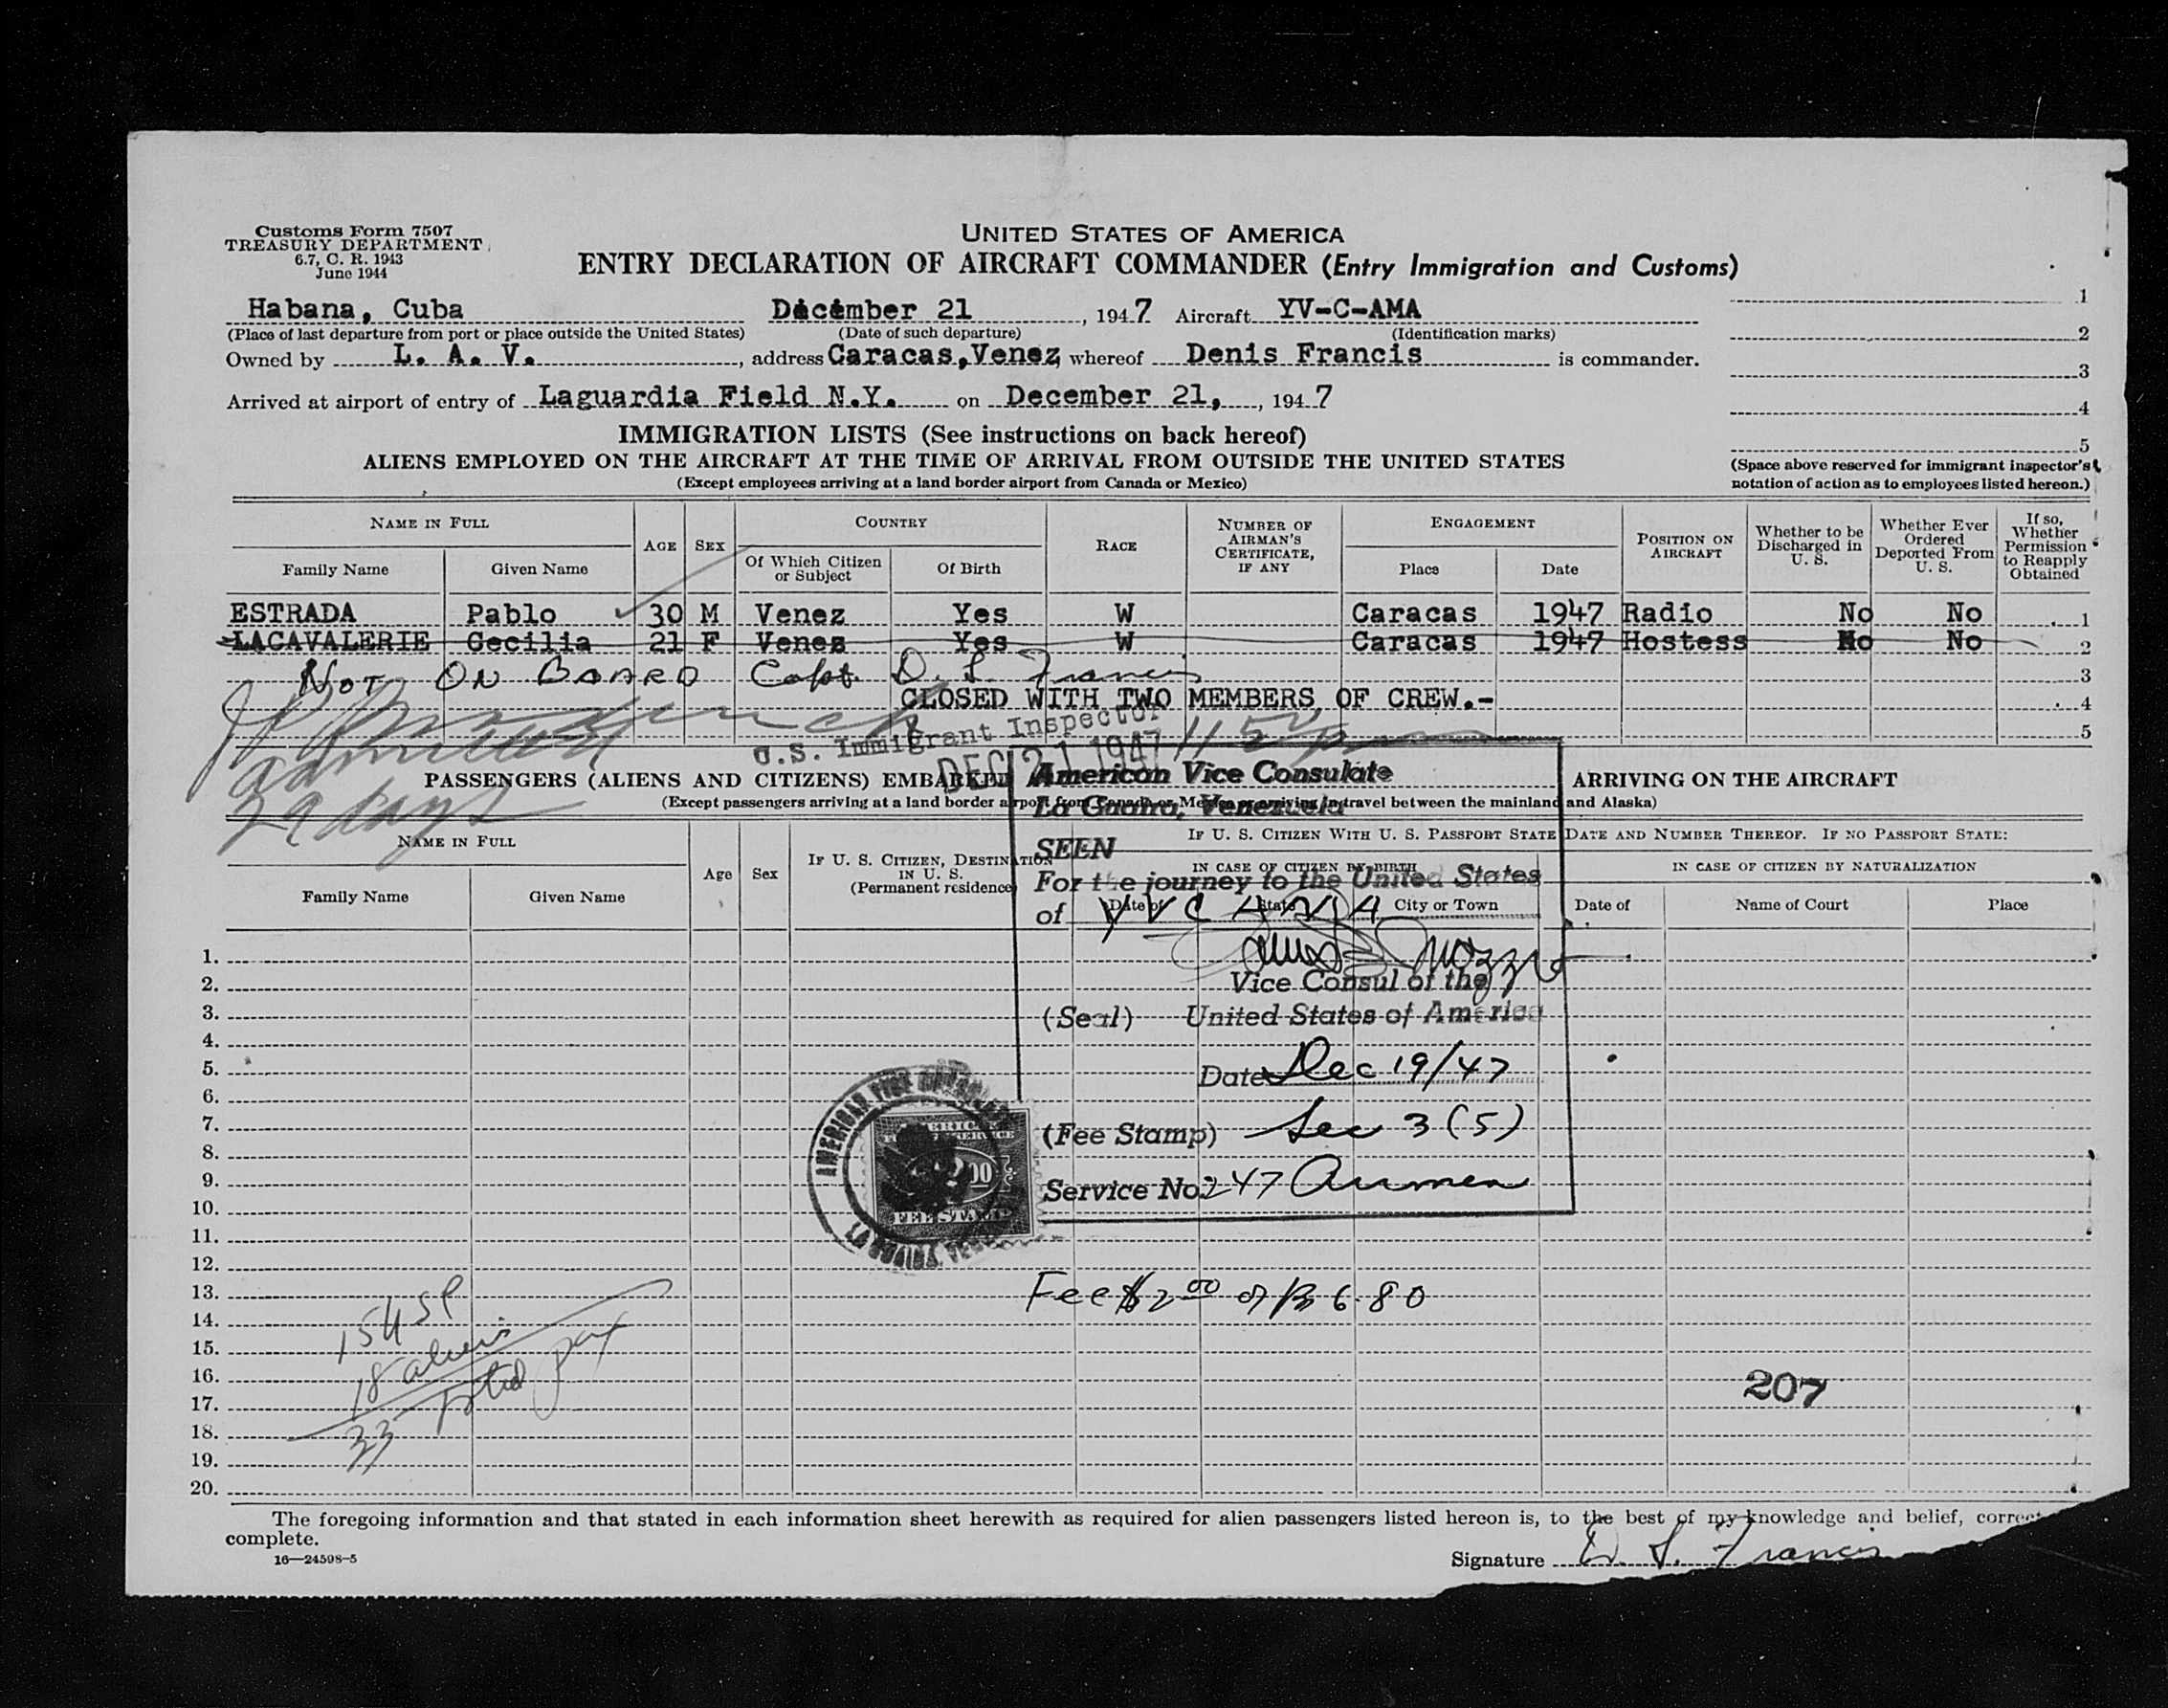 Customs Form 7507
TREASURY DEPARTMENT
6.7, C. R. 1943
June 1944
UNITED STATES OF AMERICA
ENTRY DECLARATION OF AIRCRAFT COMMANDER (Entry Immigration and Customs)
Habana, Cuba December 21, 1947 Aircraft YV-C-AMA 1
(Place of last departure from port or place outside the United States) (Date of such departure) (Identification marks) 2
Owned by L. A. V., address Caracas, Venez, whereof Denis Francis is commander.
3
Arrived at airport of entry of Laguardia Field N.Y. on December 21, , 1947
4
IMMIGRATION LISTS (See instructions on back hereof)
5
ALIENS EMPLOYED ON THE AIRCRAFT AT THE TIME OF ARRIVAL FROM OUTSIDE THE UNITED STATES
(Except employees arriving at a land border airport from Canada or Mexico)
(Space above reserved for immigrant inspector's
notation of action as to employees listed hereon.)
NAME IN FULL AGE SEX COUNTRY RACE NUMBER OF AIRMAN'S CERTIFICATE, IF ANY ENGAGEMENT POSITION ON AIRCRAFT Whether to be Discharged in U. S. Whether Ever Ordered Deported From U. S. If so, Whether Permission to Reapply Obtained
Family Name Given Name Of Which Citizen or Subject Of Birth Place Date
ESTRADA Pablo 30 M Venez Yes W Caracas 1947 Radio No No 1
LACAVALERIE Cecilia 21 F Venez Yes W Caracas 1947 Hostess No No 2
NOT ON BOARD Capt. D. S. Francis 3
CLOSED WITH TWO MEMBERS OF CREW.- 4
5
U.S. Immigrant Inspector
DEC 21 1947
admitted
29 days
PASSENGERS (ALIENS AND CITIZENS) EMBARKED ARRIVING ON THE AIRCRAFT
(Except passengers arriving at a land border airport from Canada or Mexico or arriving in travel between the mainland and Alaska)
American Vice Consulate
La Guaira, Venezuela
SEEN
For the journey to the United States
of YVC AMA
Vice Consul of the
(Seal) United States of America
Date Dec 19/47
(Fee Stamp) Sec 3 (5)
Service No. 247 Airmen
NAME IN FULL Age Sex IF U. S. CITIZEN, DESTINATION IN U. S. (Permanent residence) IF U. S. CITIZEN WITH U. S. PASSPORT STATE DATE AND NUMBER THEREOF. IF NO PASSPORT STATE:
IN CASE OF CITIZEN BY BIRTH IN CASE OF CITIZEN BY NATURALIZATION
Family Name Given Name Date of State City or Town Date of Name of Court Place
1.
2.
3.
4.
5.
6.
7.
8.
9.
10.
11.
12.
13.
14.
15.
16.
17.
18.
19.
20.
AMERICAN VICE
FEE STAMP
Fee $2.00 or Bs 6.80
18 aliens
33 total pax
207
The foregoing information and that stated in each information sheet herewith as required for alien passengers listed hereon is, to the best of my knowledge and belief, correct
complete.
16—24598-5
Signature D. S. Francis